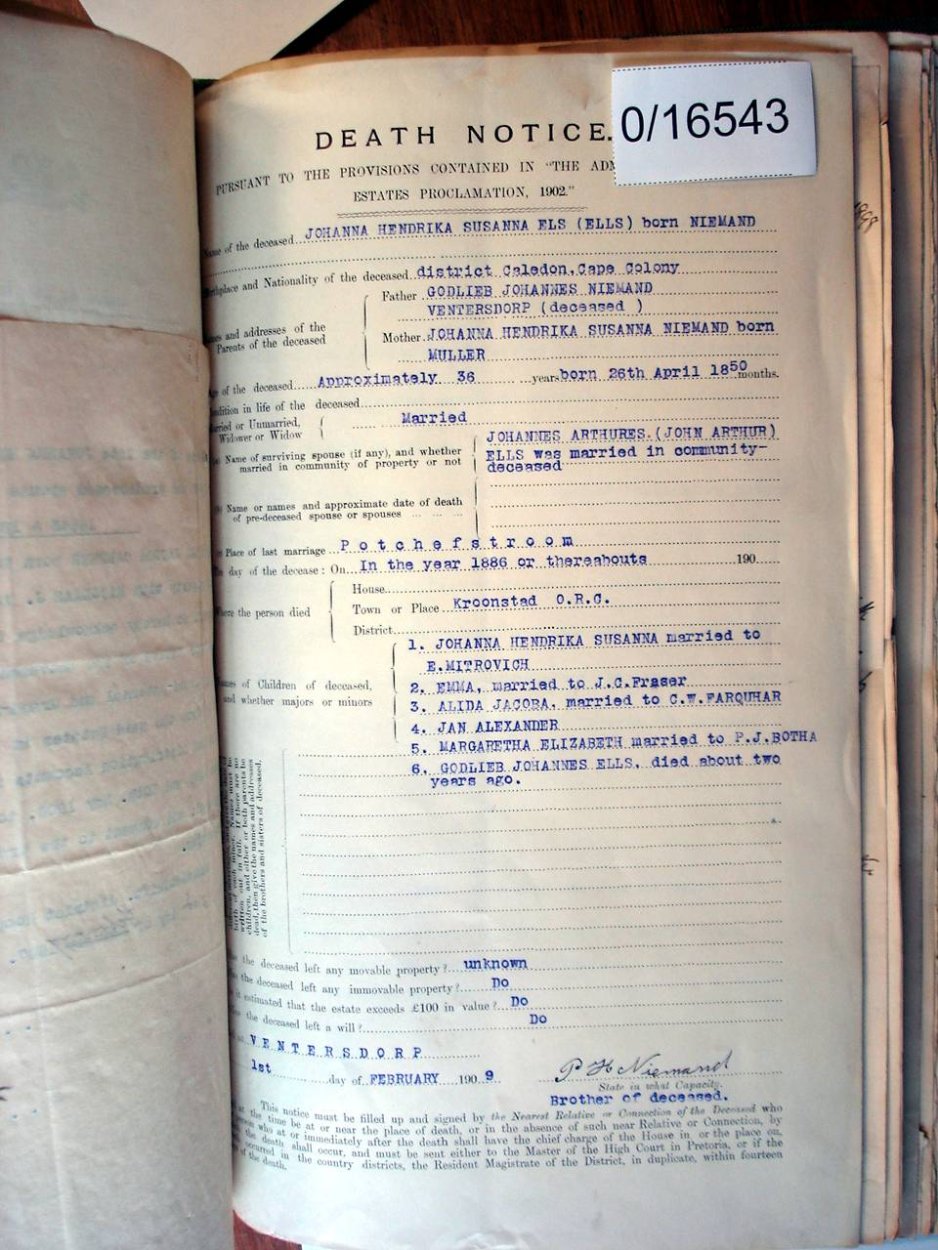 0/16543
DEATH NOTICE.
PURSUANT TO THE PROVISIONS CONTAINED IN "THE ADM
ESTATES PROCLAMATION, 1902."
Name of the deceased JOHANNA HENDRIKA SUSANNA ELS (ELLS) born NIEMAND
Birthplace and Nationality of the deceased district Caledon, Cape Colony
Names and addresses of the Parents of the deceased
Father GODLIEB JOHANNES NIEMAND
VENTERSDORP (deceased )
Mother JOHANNA HENDRIKA SUSANNA NIEMAND born
MULLER
Age of the deceased Approximately 36 years born 26th April 1850 months.
Condition in life of the deceased
Married or Unmarried,
Widower or Widow
Married
Name of surviving spouse (if any), and whether
married in community of property or not
JOHANNES ARTHURES.(JOHN ARTHUR)
ELLS was married in community-
deceased
Name or names and approximate date of death
of pre-deceased spouse or spouses
Place of last marriage Potchefstroom
The day of the decease: On In the year 1886 or thereabouts 190
Where the person died
House
Town or Place Kroonstad O.R.C.
District
Names of Children of deceased,
and whether majors or minors
1. JOHANNA HENDRIKA SUSANNA married to
E.MITROVICH
2. EMMA, married to J.C.Fraser
3. ALIDA JACOBA, married to C.W.FARQUHAR
4. JAN ALEXANDER
5. MARGARETHA ELIZABETH married to P.J.BOTHA
6. GODLIEB JOHANNES ELLS, died about two
years ago.
birth of each minor. Names must be
written out in full. If there are no
children, and either or both parents be
dead, then give the names and addresses
of the brothers and sisters of deceased.
the deceased left any movable property? unknown
the deceased left any immovable property? Do
estimated that the estate exceeds £100 in value? Do
the deceased left a will? Do
VENTERSDORP
1st day of FEBRUARY 1909
P H Niemand
State in what Capacity.
Brother of deceased.
This notice must be filled up and signed by the Nearest Relative or Connection of the Deceased who
the time be at or near the place of death, or in the absence of such near Relative or Connection, by
who at or immediately after the death shall have the chief charge of the House in or the place on
the death shall occur, and must be sent either to the Master of the High Court in Pretoria, or if the
occurred in the country districts, the Resident Magistrate of the District, in duplicate, within fourteen
of the death.